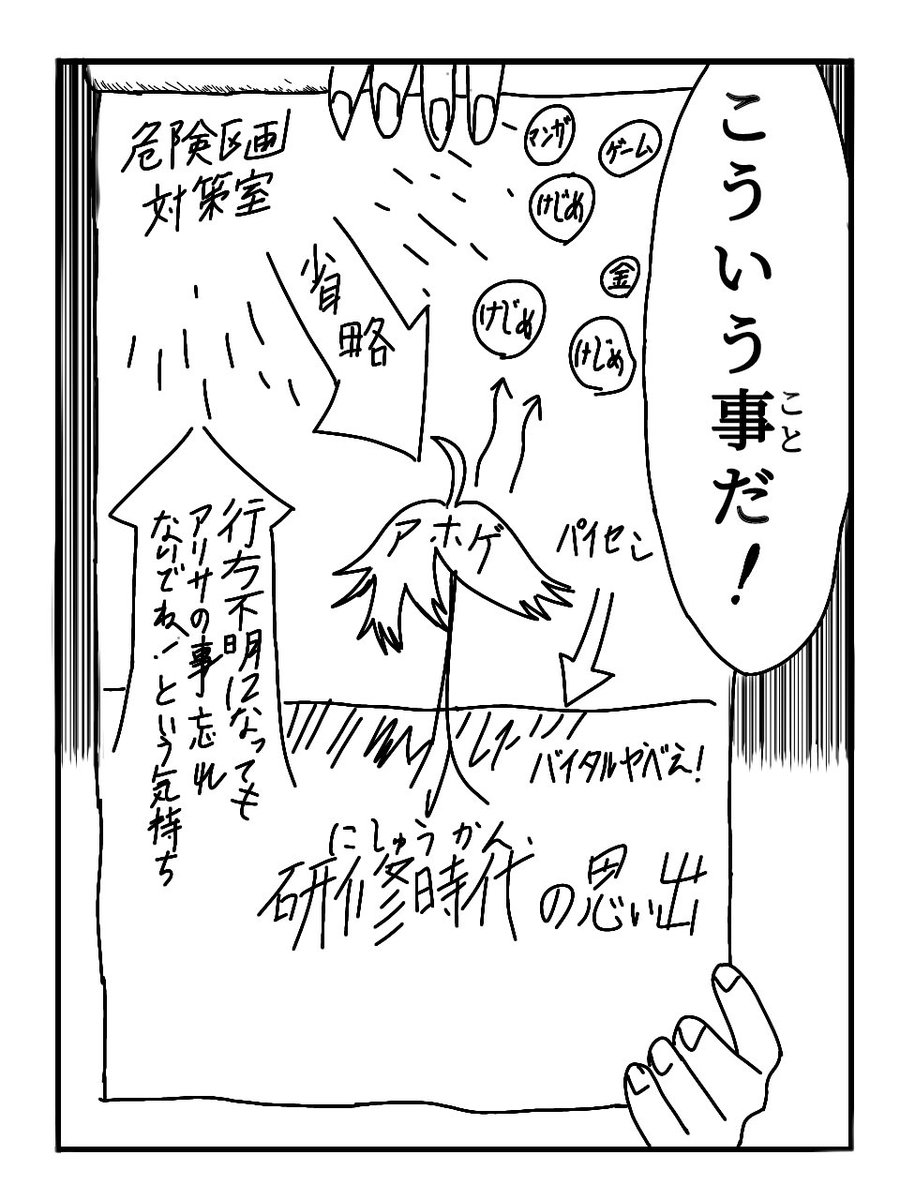 こういう事だ！
こと
危険区画
対策室
マンガ
ゲーム
けじめ
金
けじめ
けじめ
省略
アホゲ
パイセン
行方不明になっても
アリサの事忘れ
ないでね！という気持ち
バイタルやべぇ！
にしゅうかん
研修時代の思い出